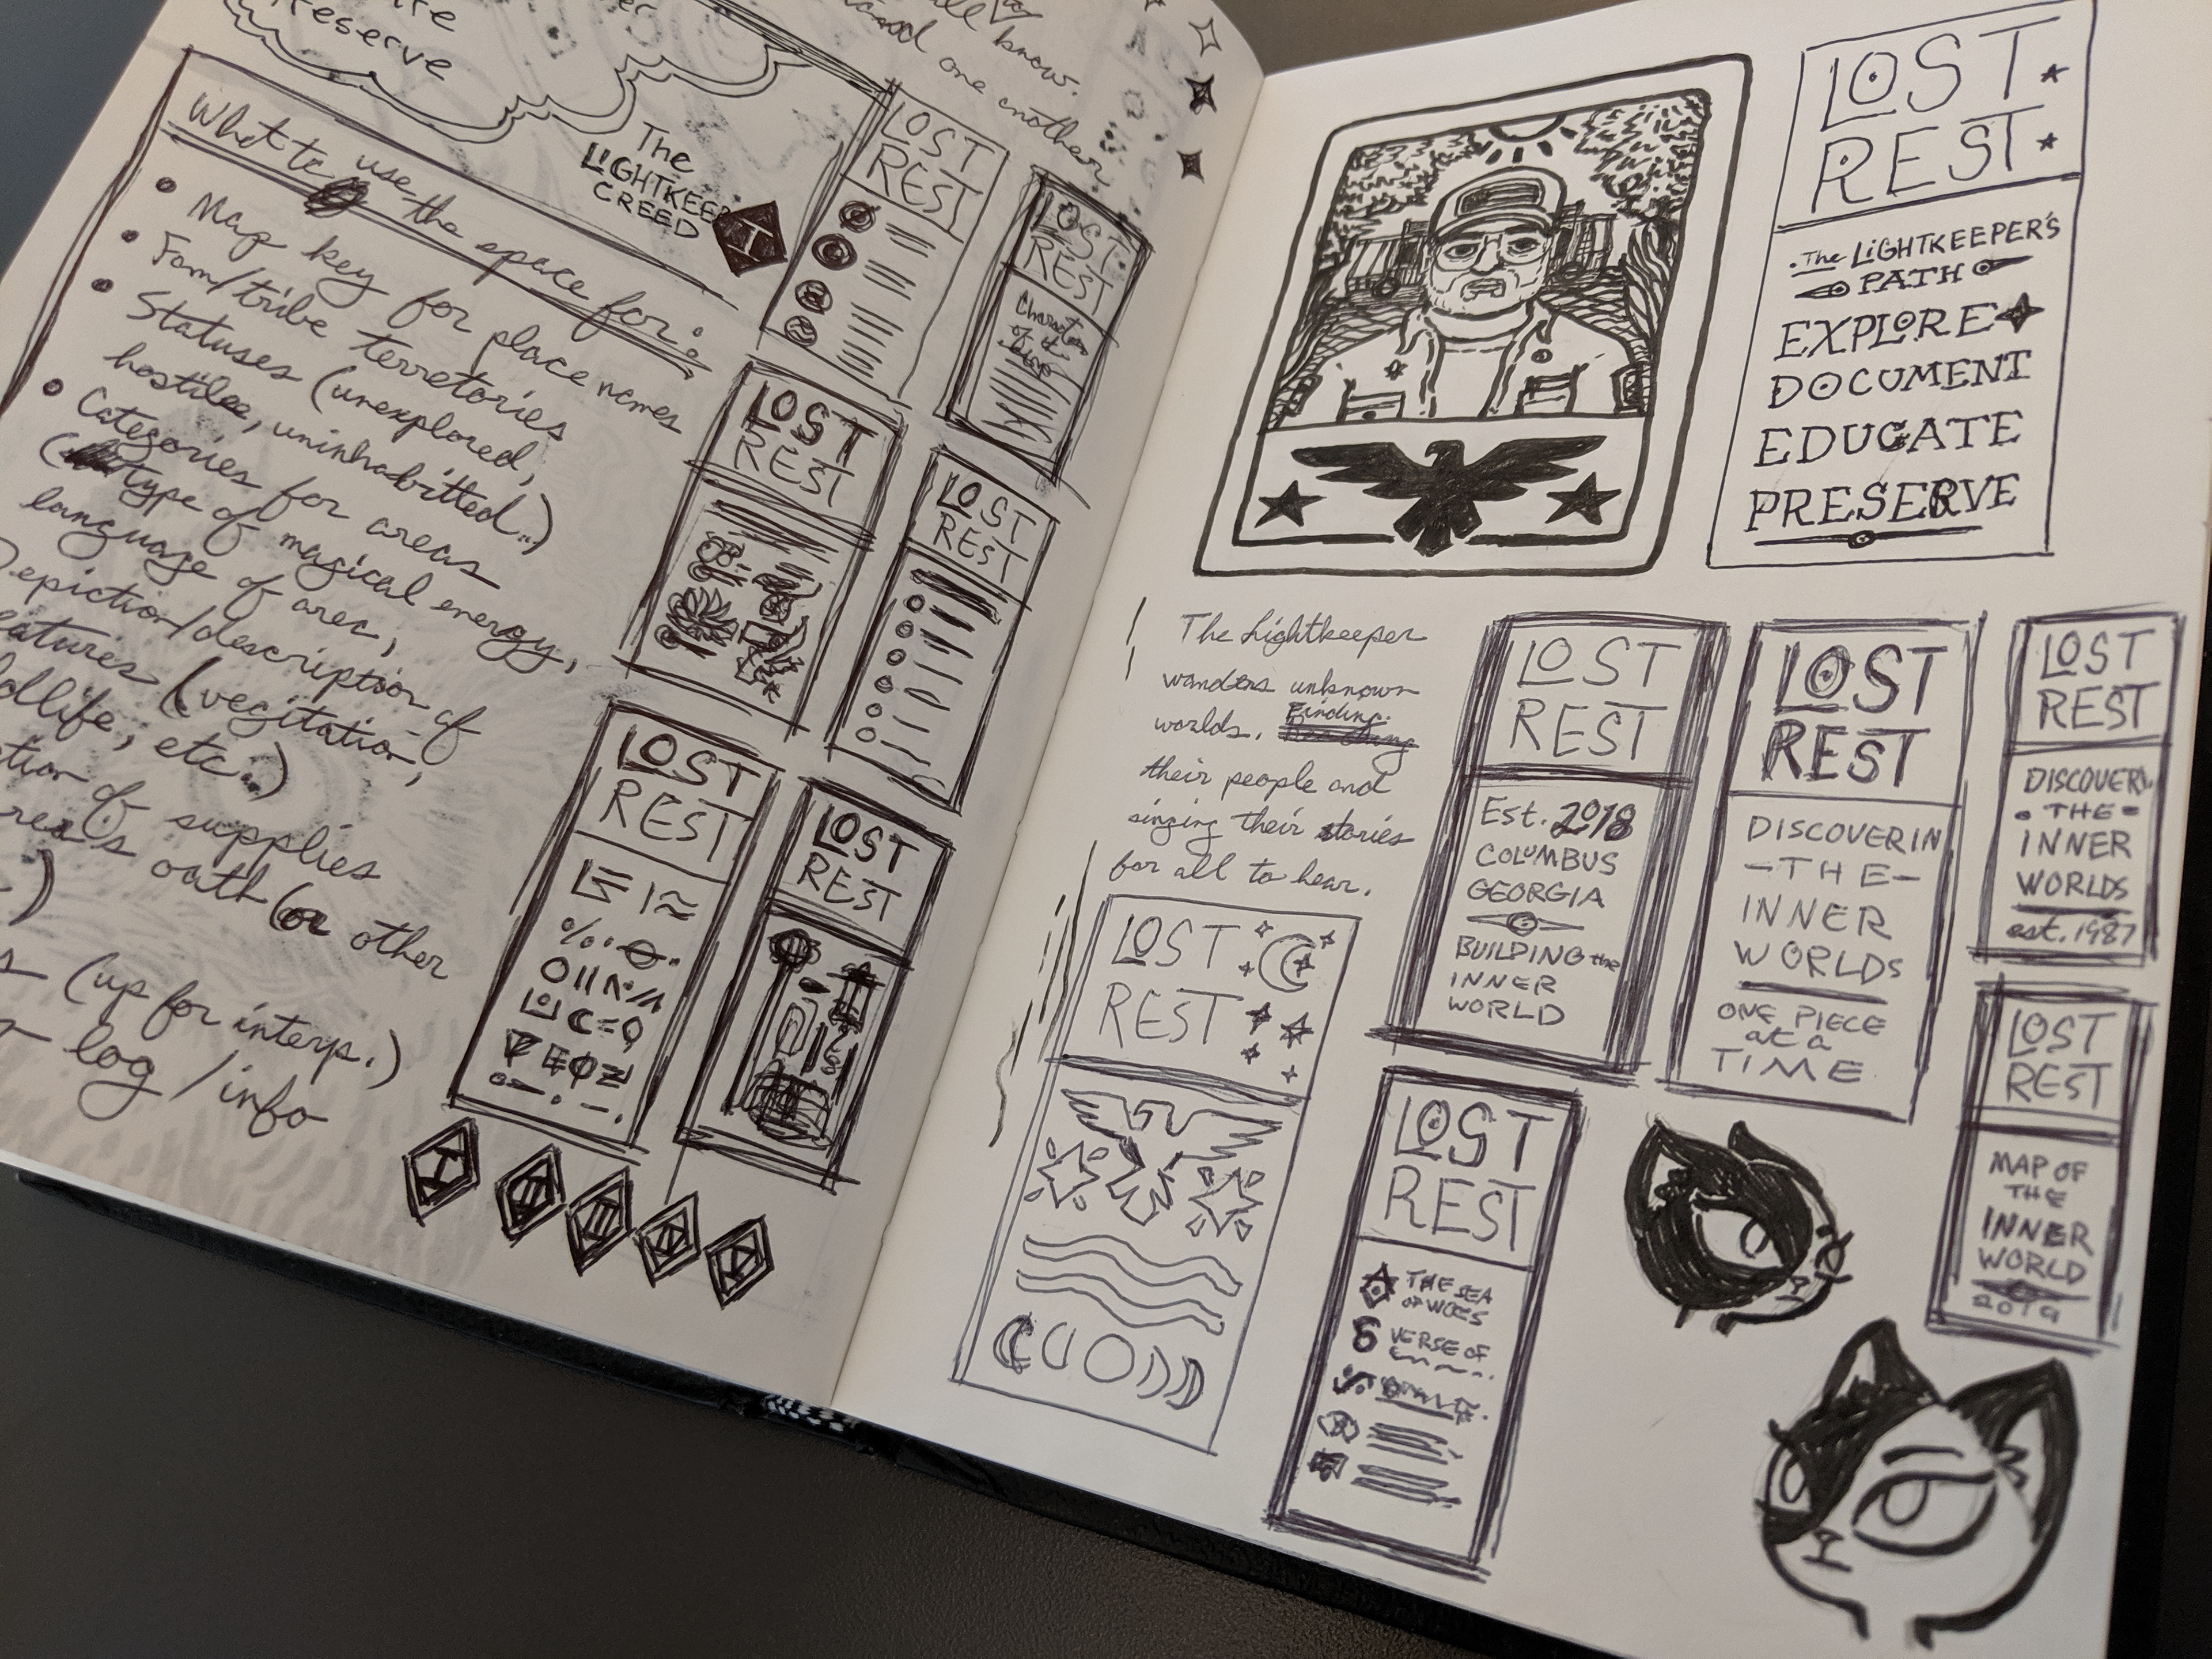 reserve
all know.
and one another
What to use the space for:
• Map key for place names
• Fam/tribe terretories
• Statuses (unexplored,
hostile, uninhabitted..)
• Categories for areas
(type of magical energy,
language of area,
Depiction/description of
features (vegitation,
etc..)
of supplies
oath (or other
(up for interp.)
log / info
The
LIGHTKEEP
CREED
LOST
REST
LOST
REST
LOST
REST
LOST
REST
LOST
REST
LOST
REST
LOST
REST
• The LIGHTKEEPER'S
PATH
EXPLORE
DOCUMENT
EDUCATE
PRESERVE
The Lightkeeper
wanders unknown
worlds. Finding
their people and
singing their stories
for all to hear.
LOST
REST
Est. 2018
COLUMBUS
GEORGIA
BUILDING the
INNER
WORLD
LOST
REST
DISCOVERIN
-THE-
INNER
WORLDS
ONE PIECE
at a
TIME
LOST
REST
DISCOVERIN
• THE •
INNER
WORLDS
est. 1987
LOST
REST
LOST
REST
THE SEA
OF WOES
VERSE OF
LOST
REST
MAP OF
THE
INNER
WORLD
2019